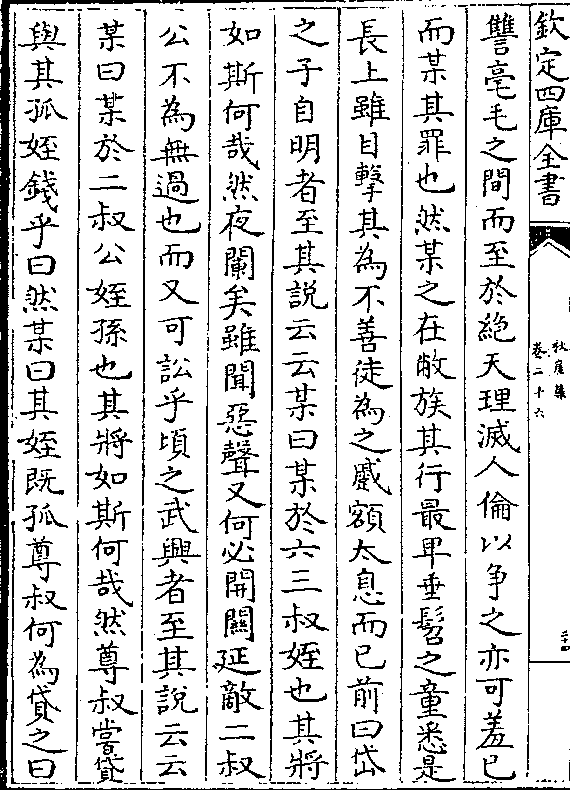 欽定四庫全書
秋崖集
卷二十六
讐毫毛之間而至於絶天理滅人倫以争之亦可羞已
而某其罪也然某之在敝族其行最卑垂髫之童悉是
長上雖目擊其為不善徒為之蹙額太息而已前曰岱
之子自明者至其説云云某曰某於六三叔姪也其將
如斯何哉然夜闌矣雖聞惡聲又何必開闗延敵二叔
公不為無過也而又可訟乎頃之武興者至其説云云
某曰某於二叔公姪孫也其將如斯何哉然尊叔嘗貸
與其孤姪錢乎曰然某曰其姪既孤尊叔何為貸之曰